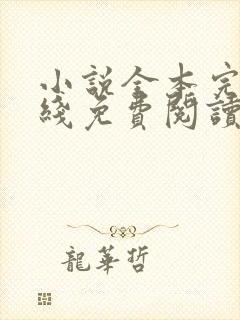 小說全本完
綫免費閱讀
龍華哲